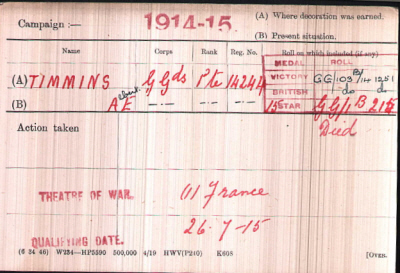 Campaign :— 1914-15. (A) Where decoration was earned.
(B) Present situation.
Name Corps Rank Reg. No. Roll on which included (if any)
MEDAL ROLL
(A) TIMMINS G Gds Pte 14244 VICTORY GG/103 B/14 1251
(B) A E Albert. —·— —·— —·— BRITISH do do
15 STAR GG/1 B 215
Action taken Died
THEATRE OF WAR. (1) France
26-7-15
QUALIFYING DATE.
(6 34 46) W234—HP5590 500,000 4/19 HWV(P240) K608 [OVER.